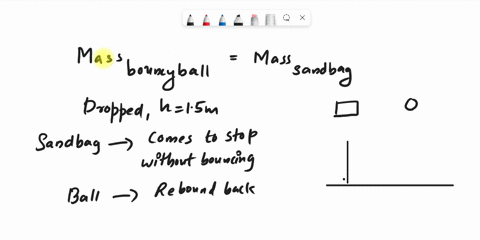 Mass bouncy ball = Mass sandbag
Dropped, h=1.5m
Sandbag → Comes to stop
without bouncing
Ball → Rebound back